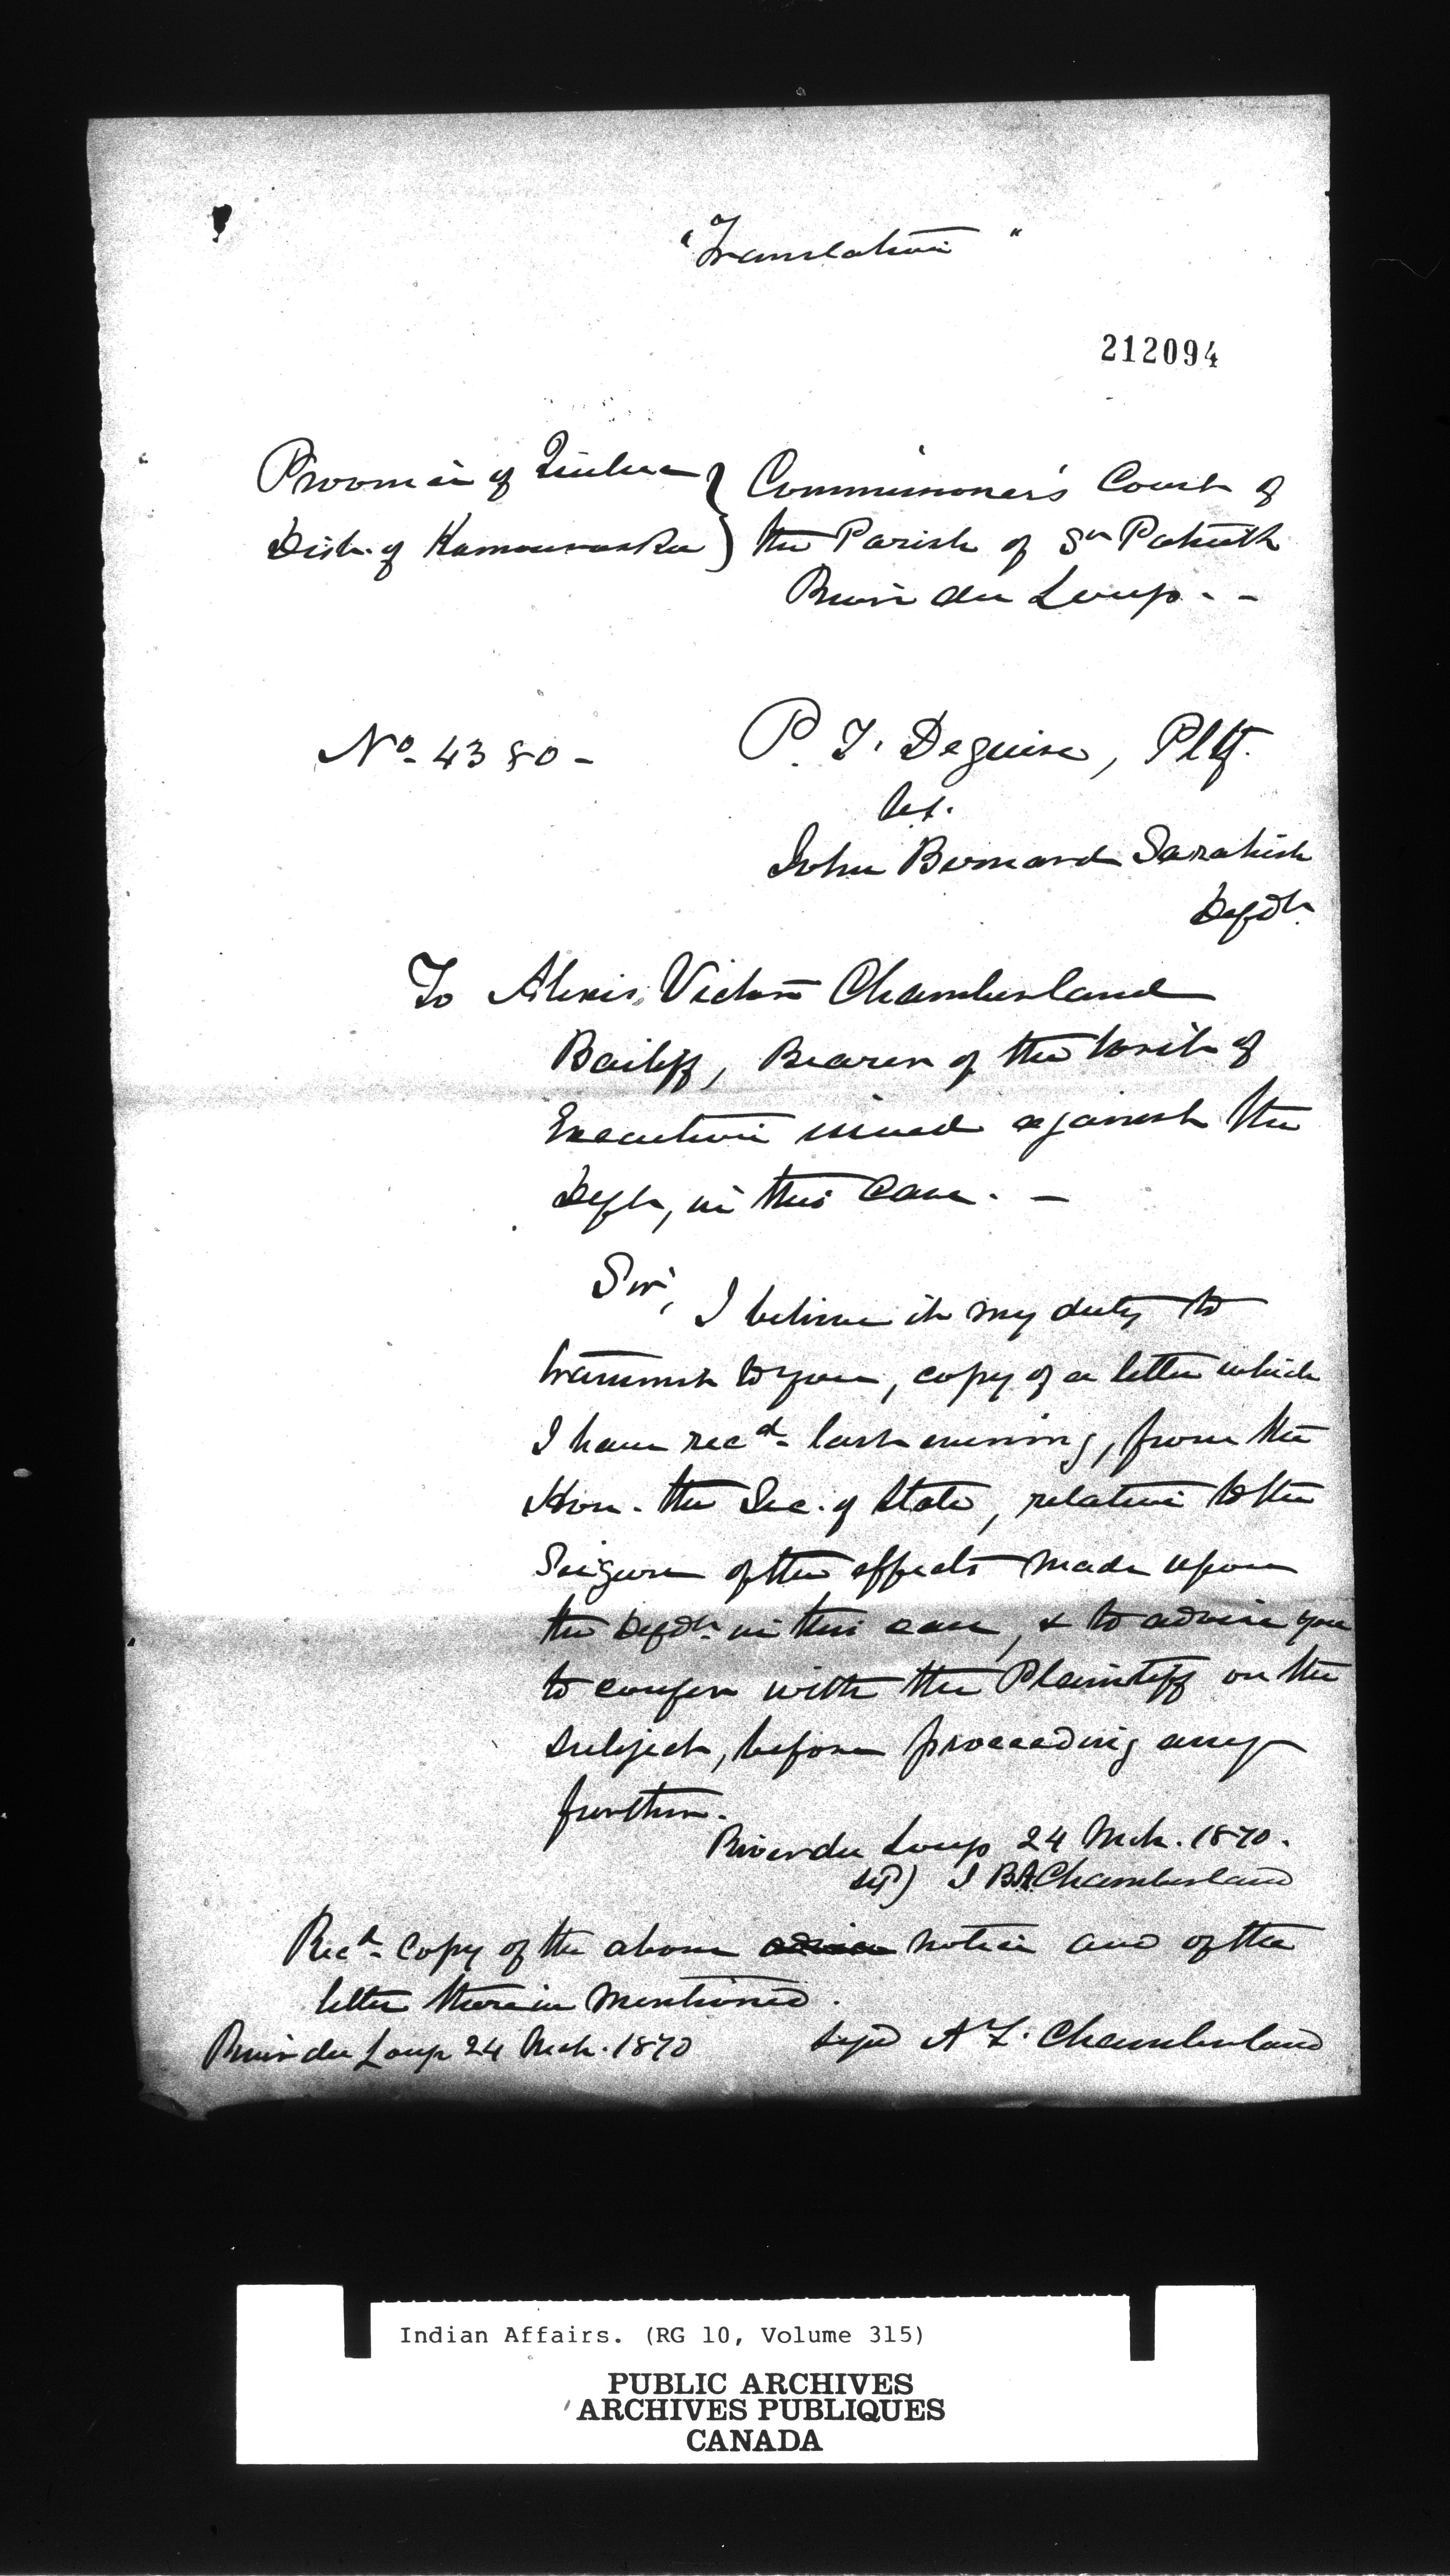 "Translation"
212094
Province of Quebec } Commissioner's Court of
Dist. of Kamouraska } the Parish of St Patrick
River du Loup. -
No. 4380 - P. T. Deguise, Pltf.
vs.
John Bernard
Defdt.
To Alexis Victor Chamberland
Bailiff, Bearer of the Writ of
Execution issued against the
Deft, in this Case. -
Sir,
I believe it my duty to
transmit to you, copy of a letter which
I have recd. last evening, from the
Hon. the Sec. of State, relative to the
Seizure of the effects made upon
the Defdt. in this case, & to advise you
to confer with the Plaintiff on the
subject, before proceeding any
further.
River du Loup 24 Mch. 1870.
sigd) J BA Chamberland
Recd. Copy of the above advice notice and of the
letter therein Mentioned.
River du Loup 24 Mch. 1870 sigd A Chamberland
Indian Affairs. (RG 10, Volume 315)
PUBLIC ARCHIVES
ARCHIVES PUBLIQUES
CANADA